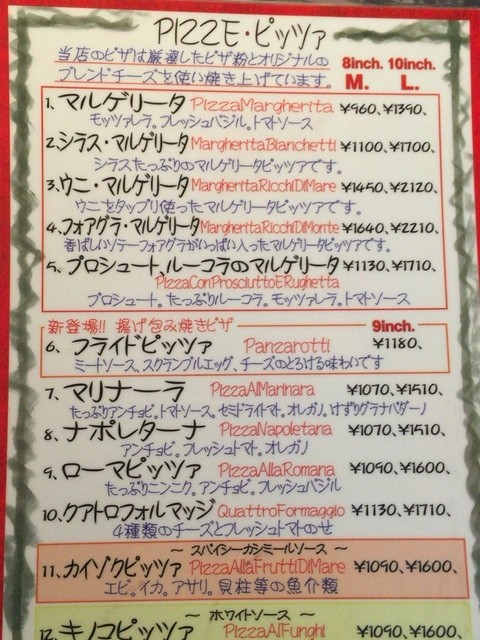 PIZZE・ピッツァ
当店のピザは厳選したピザ粉とオリジナルの
ブレンドチーズを使い焼き上げています。
8inch. 10inch.
M. L.
1、マルゲリータ PizzaMargherita ¥960、¥1390、
モッツァレラ。フレッシュバジル。トマトソース
2、シラス・マルゲリータ MargherittaBianchetti ¥1100、¥1700、
シラスたっぷりのマルゲリータピッツアです。
3、ウニ・マルゲリータ MargherittaRicchiDiMare ¥1450、¥2120、
ウニをタップリ使ったマルゲリータピッツアです。
4、フォアグラ・マルゲリータ MargherittaRicchiDiMonte ¥1640、¥2210、
香ばしいソテーフォアグラがいっぱい入ったマルゲリータピッツァです。
5、プロシュート、ルーコラのマルゲリータ ¥1130、¥1710、
PizzaConProsciuttoERughetta
プロシュート。たっぷりルーコラ。モッツァレラ。トマトソース
新登場!! 揚げ包み焼きピザ 9inch.
6、フライドピッツァ Panzarotti ¥1180、
ミートソース、スクランブルエッグ、チーズのとろける味わいです
7、マリナーラ PizzaAlMarinara ¥1070、¥1510、
たっぷりアンチョビ。トマトソース。セミドライトマト。オレガノ。けずりグラナパダーノ
8、ナポレターナ PizzaNapoletana ¥1070、¥1510、
アンチョビ。フレッシュトマト。オレガノ
9、ローマピッツァ PizzaAllaRomana ¥1090、¥1600、
たっぷりニンニク。アンチョビ。フレッシュバジル
10、クアトロフォルマッジ QuattroFormaggio ¥1130、¥1710、
4種類のチーズとフレッシュトマトのせ
～ スパイシーガンミールソース ～
11、カイゾクピッツァ PizzaAllaFruttiDiMare ¥1090、¥1600、
エビ。イカ。アサリ。貝柱等の魚介類
～ ホワイトソース ～
12、キノコピッツァ PizzaAlFunghi ¥1090、¥1600、